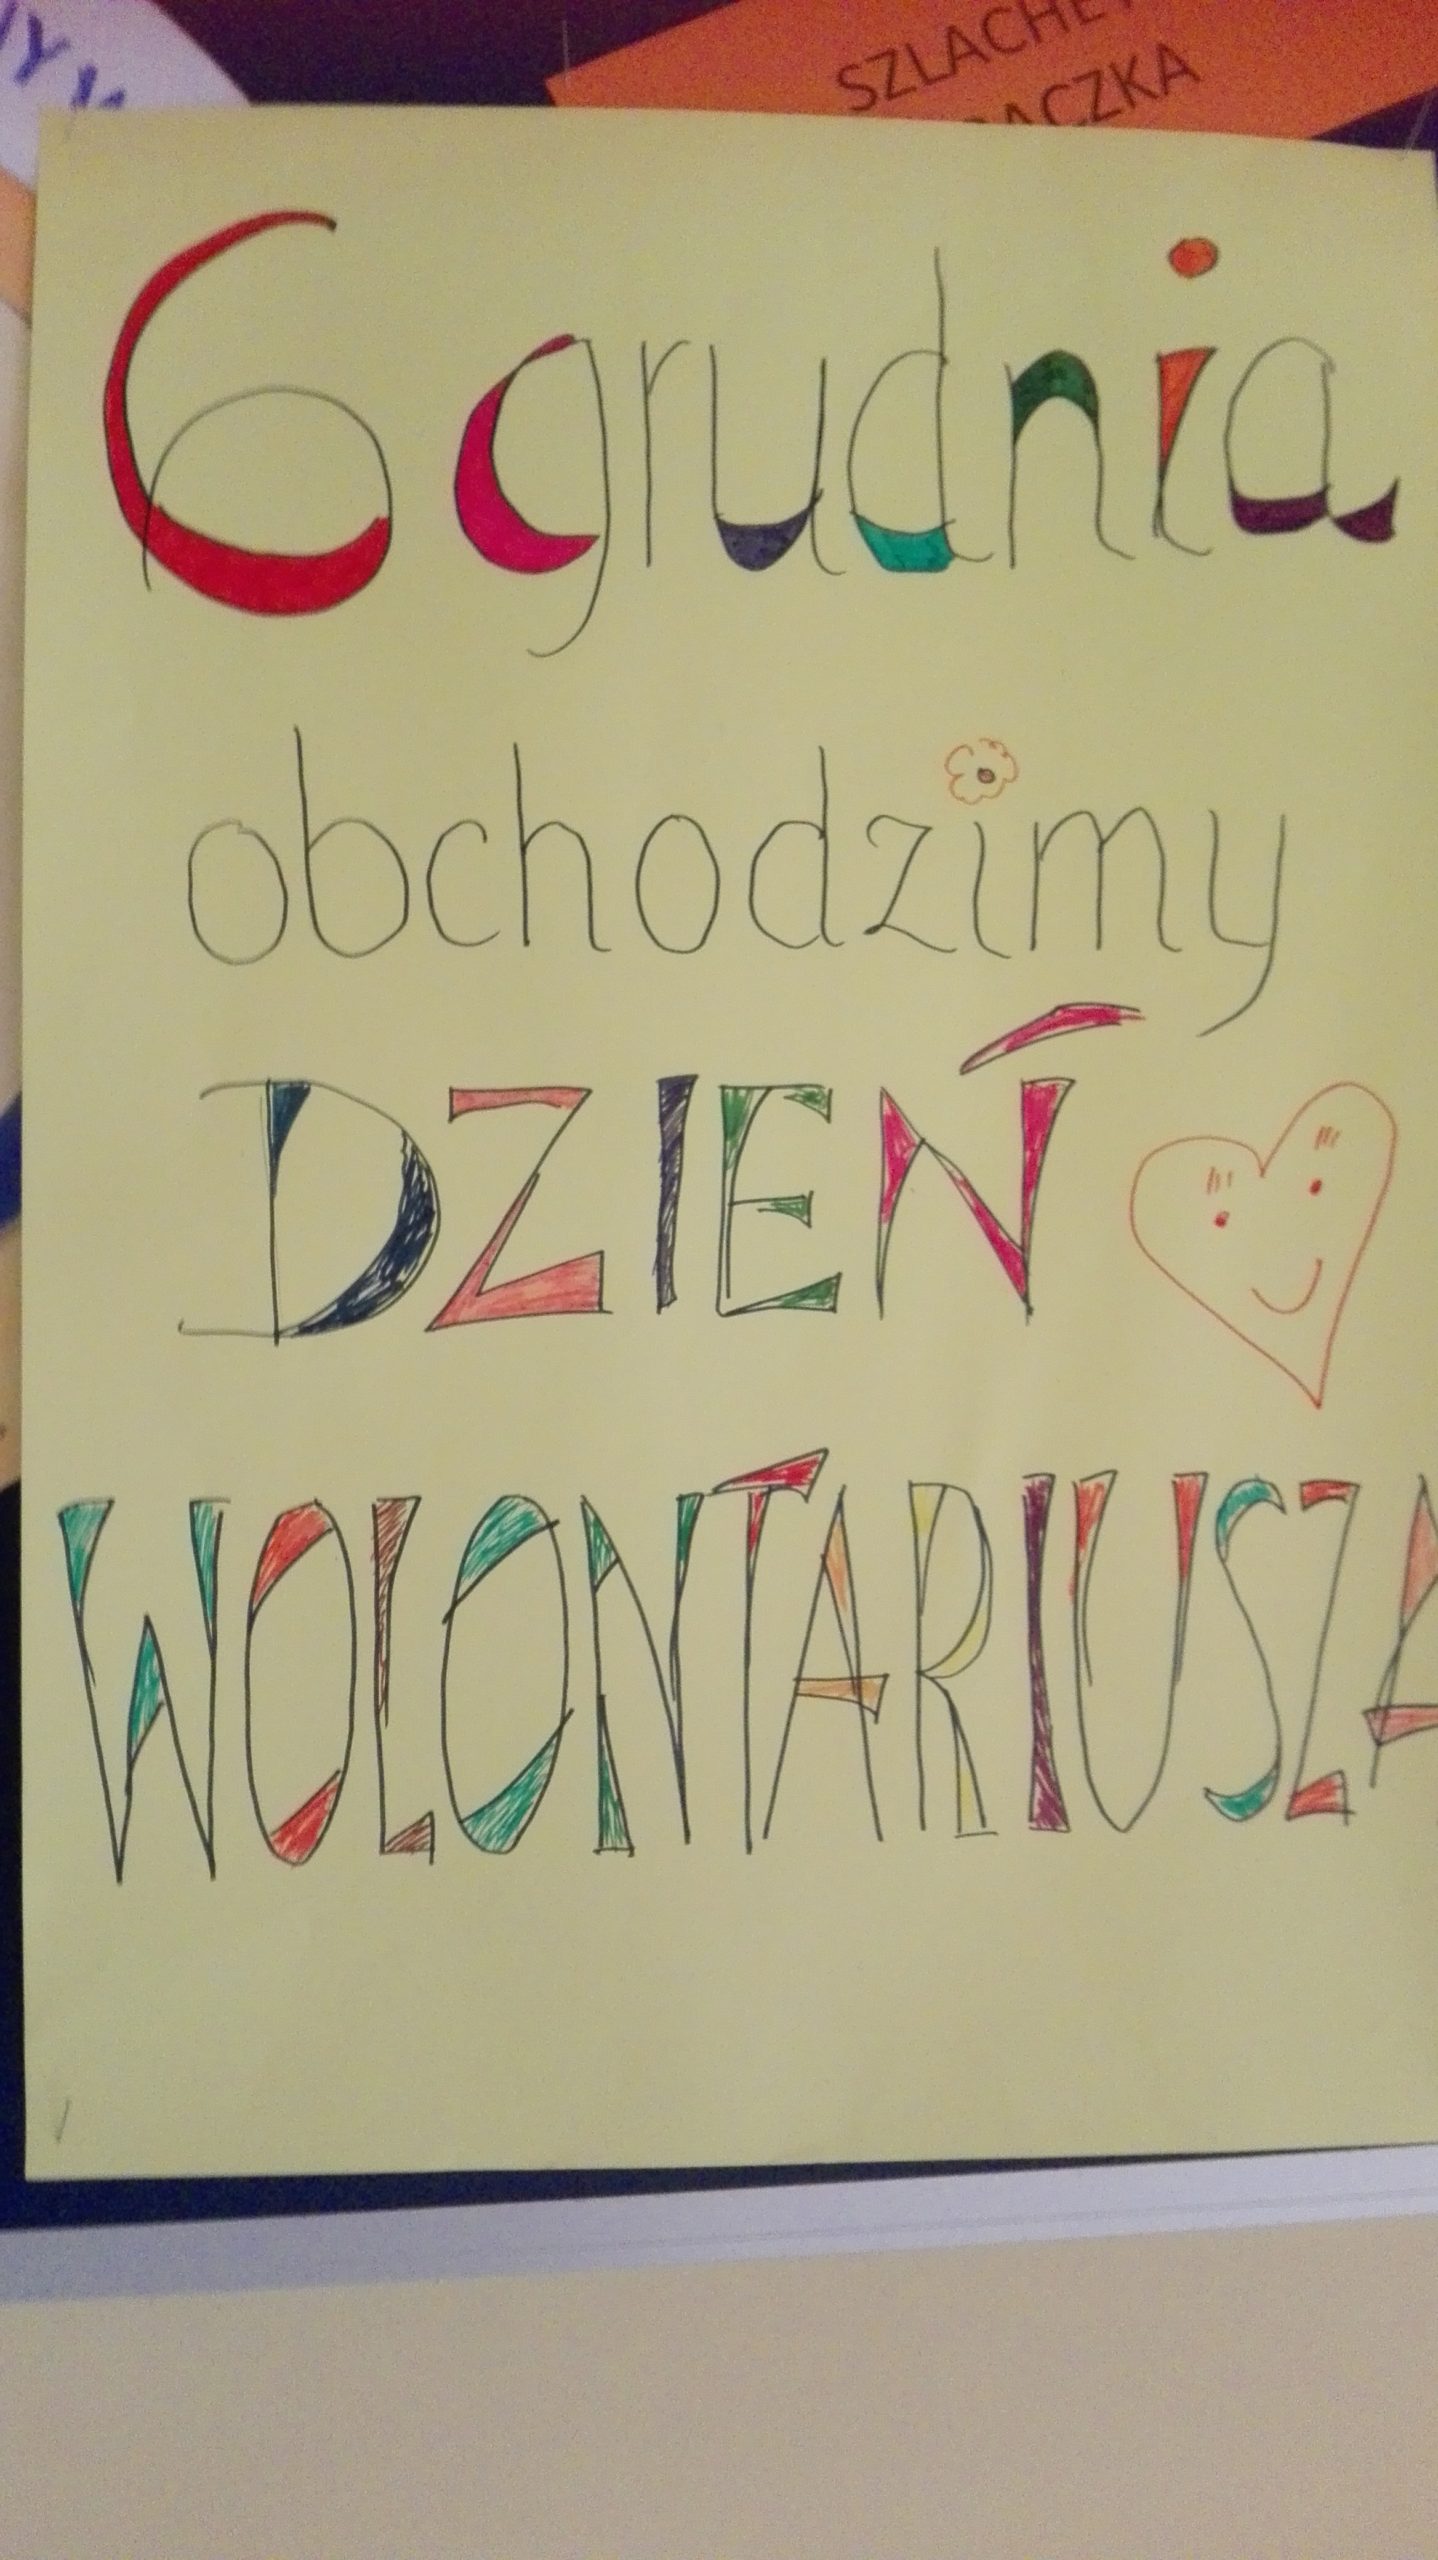 SZLACHE
6 grudnia
obchodzimy
DZIEŃ
WOLONTARIUSZA